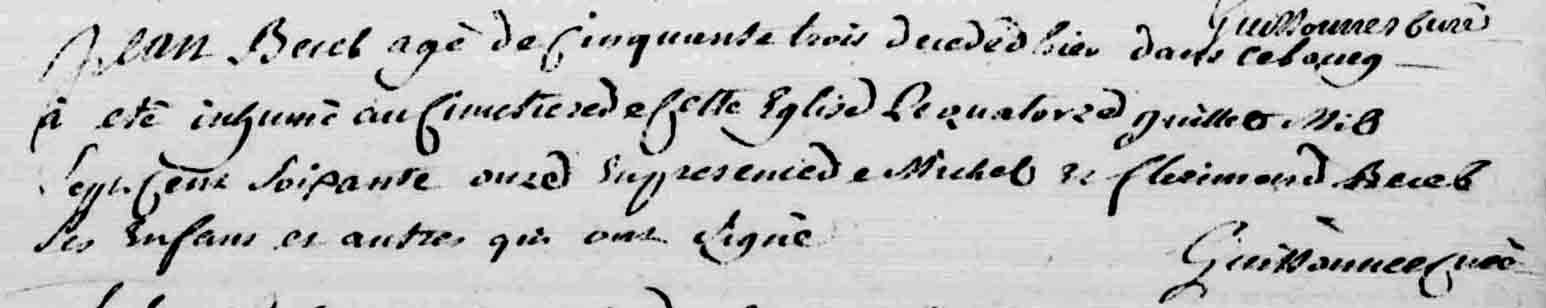 Guissonnes curé
Jean Bereb agé de Cinquante trois decedéd hier dans cebourg
à eté inhumé au Cimetiere de Cette Eglise Le quatorze juillet Mil
Sept Cent Soixante onze En presence de Michel et Clerimond Bereb
Ses Enfans et autres qui ont Signé
Guissonnes Curé